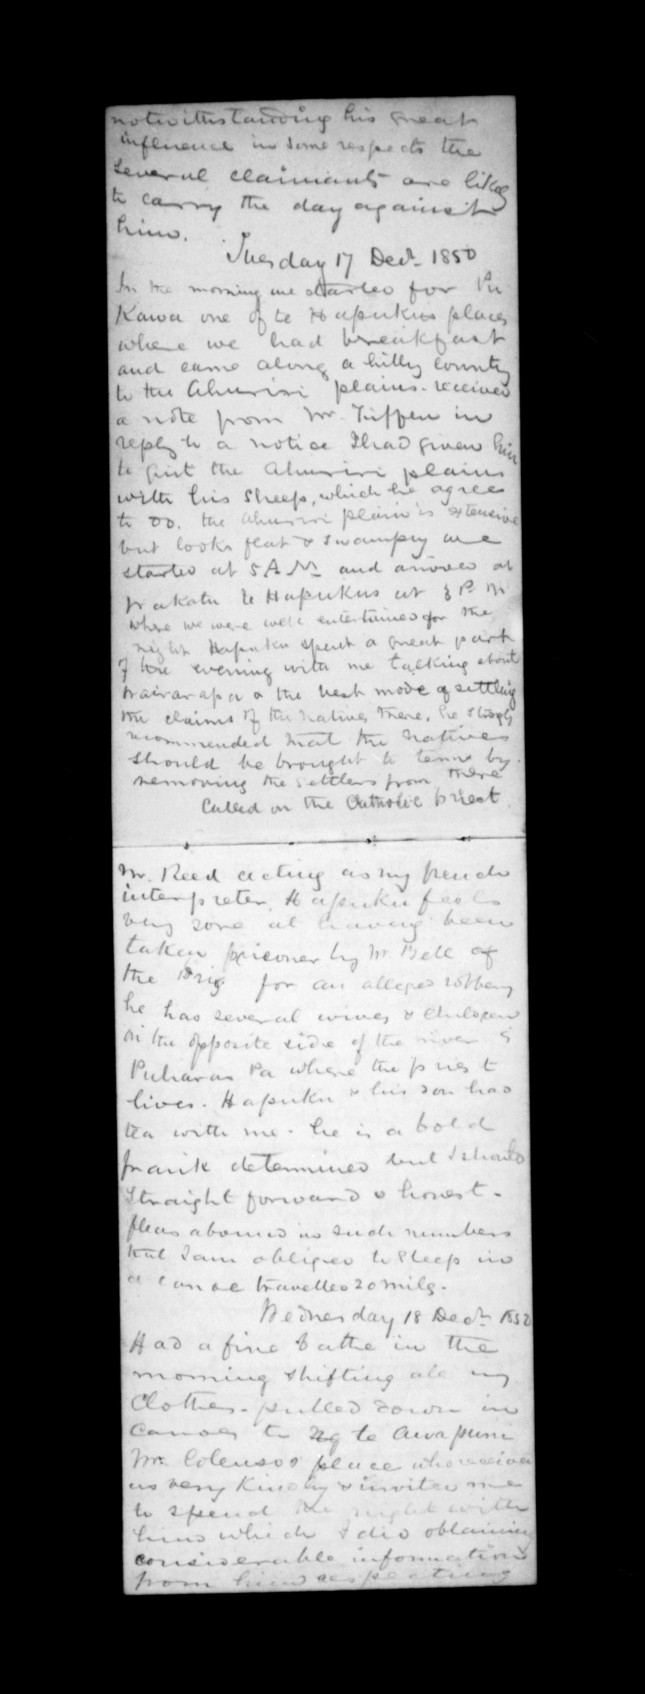 notwithstanding his great
influence in some respects the
several claimants are likely
to carry the day against
him.
Tuesday 17 Decr. 1850
In the morning we started for Pu
Kawa one of te Hapukus places
where we had breakfast
and came along a hilly country
to the Ahuriri plains. received
a note from Mr. Tiffen in
reply to a notice I had given him
to quit the Ahuriri plains
with his sheep, which he agrees
to do. the Ahuriri plain is extensive
but looks flat & swampy we
started at 5 A.M. and arrived at
te Hapukus at 3 P.M
where we were well entertained for the
night Hapuku spent a great part
of the evening with me talking about
Wairarapa & the best mode of settling
the claims of the natives there, he strongly
recommended that the natives
should be brought to terms by
removing the settlers from there
Called on the Catholic priest
Mr. Reed acting as my french
interpreter. Hapuku feels
very sore at having been
taken prisoner by Mr. Bell of
the Brig for an alleged robbery
he has several wives & children
on the opposite side of the river
Puharas Pa where the priest
lives. Hapuku & his son had
tea with me. he is a bold
frank determined but I should
straight forward & honest.
fleas abound in such numbers
that I am obliged to sleep in
a canoe travelled 20 miles.
Wednesday 18 Decr. 1850
Had a fine bathe in the
morning shifting all my
Clothes. pulled down in
canoes to te Awapuni
Mr. Colensos place who received
us very kindly & invited me
to spend the night with
him which I did obtaining
considerable information
from him respecting